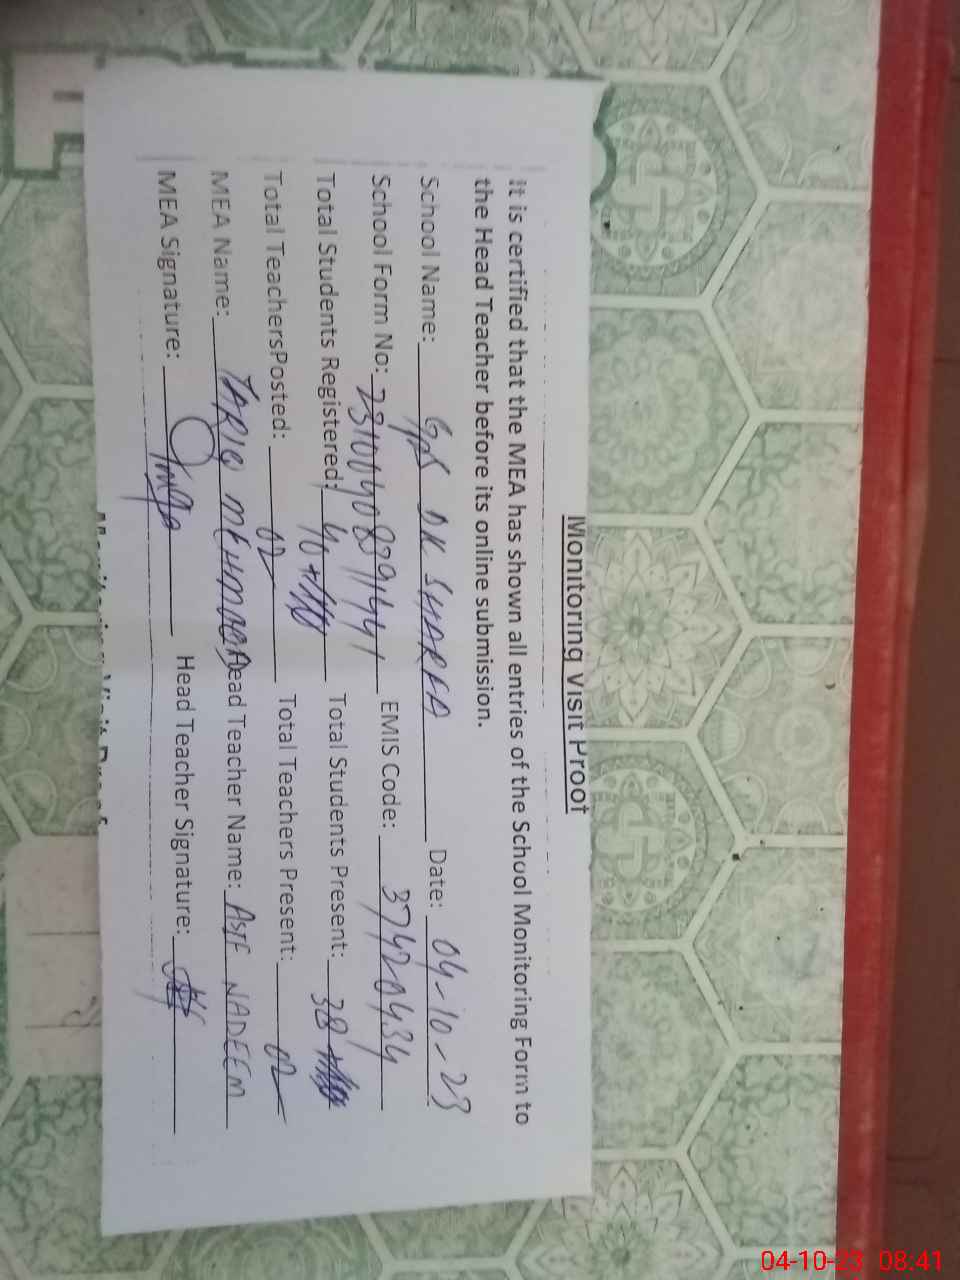 Monitoring Visit Proof
It is certified that the MEA has shown all entries of the School Monitoring Form to
the Head Teacher before its online submission.
School Name: GPS DK SHARFA Date: 04-10-23
School Form No: 2310040889144 EMIS Code: 37420434
Total Students Registered: 40 + Total Students Present: 38
Total TeachersPosted: 02 Total Teachers Present: 02
MEA Name: TARIQ MEHMOOD Head Teacher Name: ASIF NADEEM
MEA Signature: Head Teacher Signature:
04-10-23 08:41